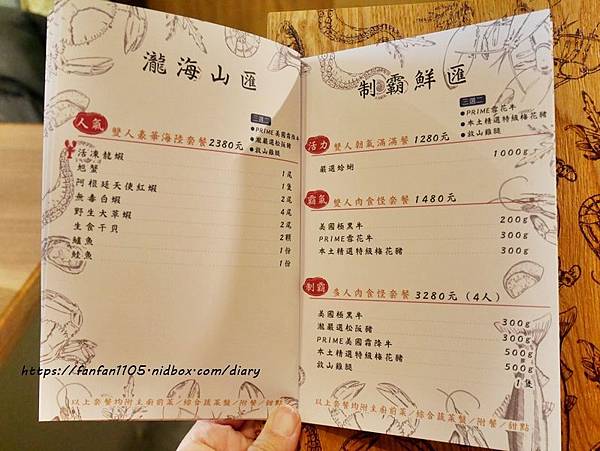 瀧海山匯
三選二
●PRIME美國霜降牛
●瀧嚴選松阪豬
●放山雞腿
人氣 雙人豪華海陸套餐2380元
活凍龍蝦 1尾
旭蟹 1隻
阿根廷天使紅蝦 2尾
無毒白蝦 4尾
野生大草蝦 2尾
生食干貝 2顆
鱸魚 1份
鮭魚 1份
以上套餐均附主廚前菜/綜合蔬菜盤/附餐/甜點
制霸鮮匯
三選二
●PRIME雪花牛
●本土精選特級梅花豬
●放山雞腿
活力 雙人朝氣滿滿餐 1280元
嚴選蛤蜊 1000g
霸氣 雙人肉食怪套餐 1480元
美國極黑牛 200g
PRIME雪花牛 300g
本土精選特級梅花豬 300g
制霸 多人肉食怪套餐 3280元(4人)
美國極黑牛 300g
瀧嚴選松阪豬 300g
PRIME美國霜降牛 500g
本土精選特級梅花豬 500g
放山雞腿 1隻
以上套餐均附主廚前菜/綜合蔬菜盤/附餐/甜點
https://fanfan1105.nidbox.com/diary